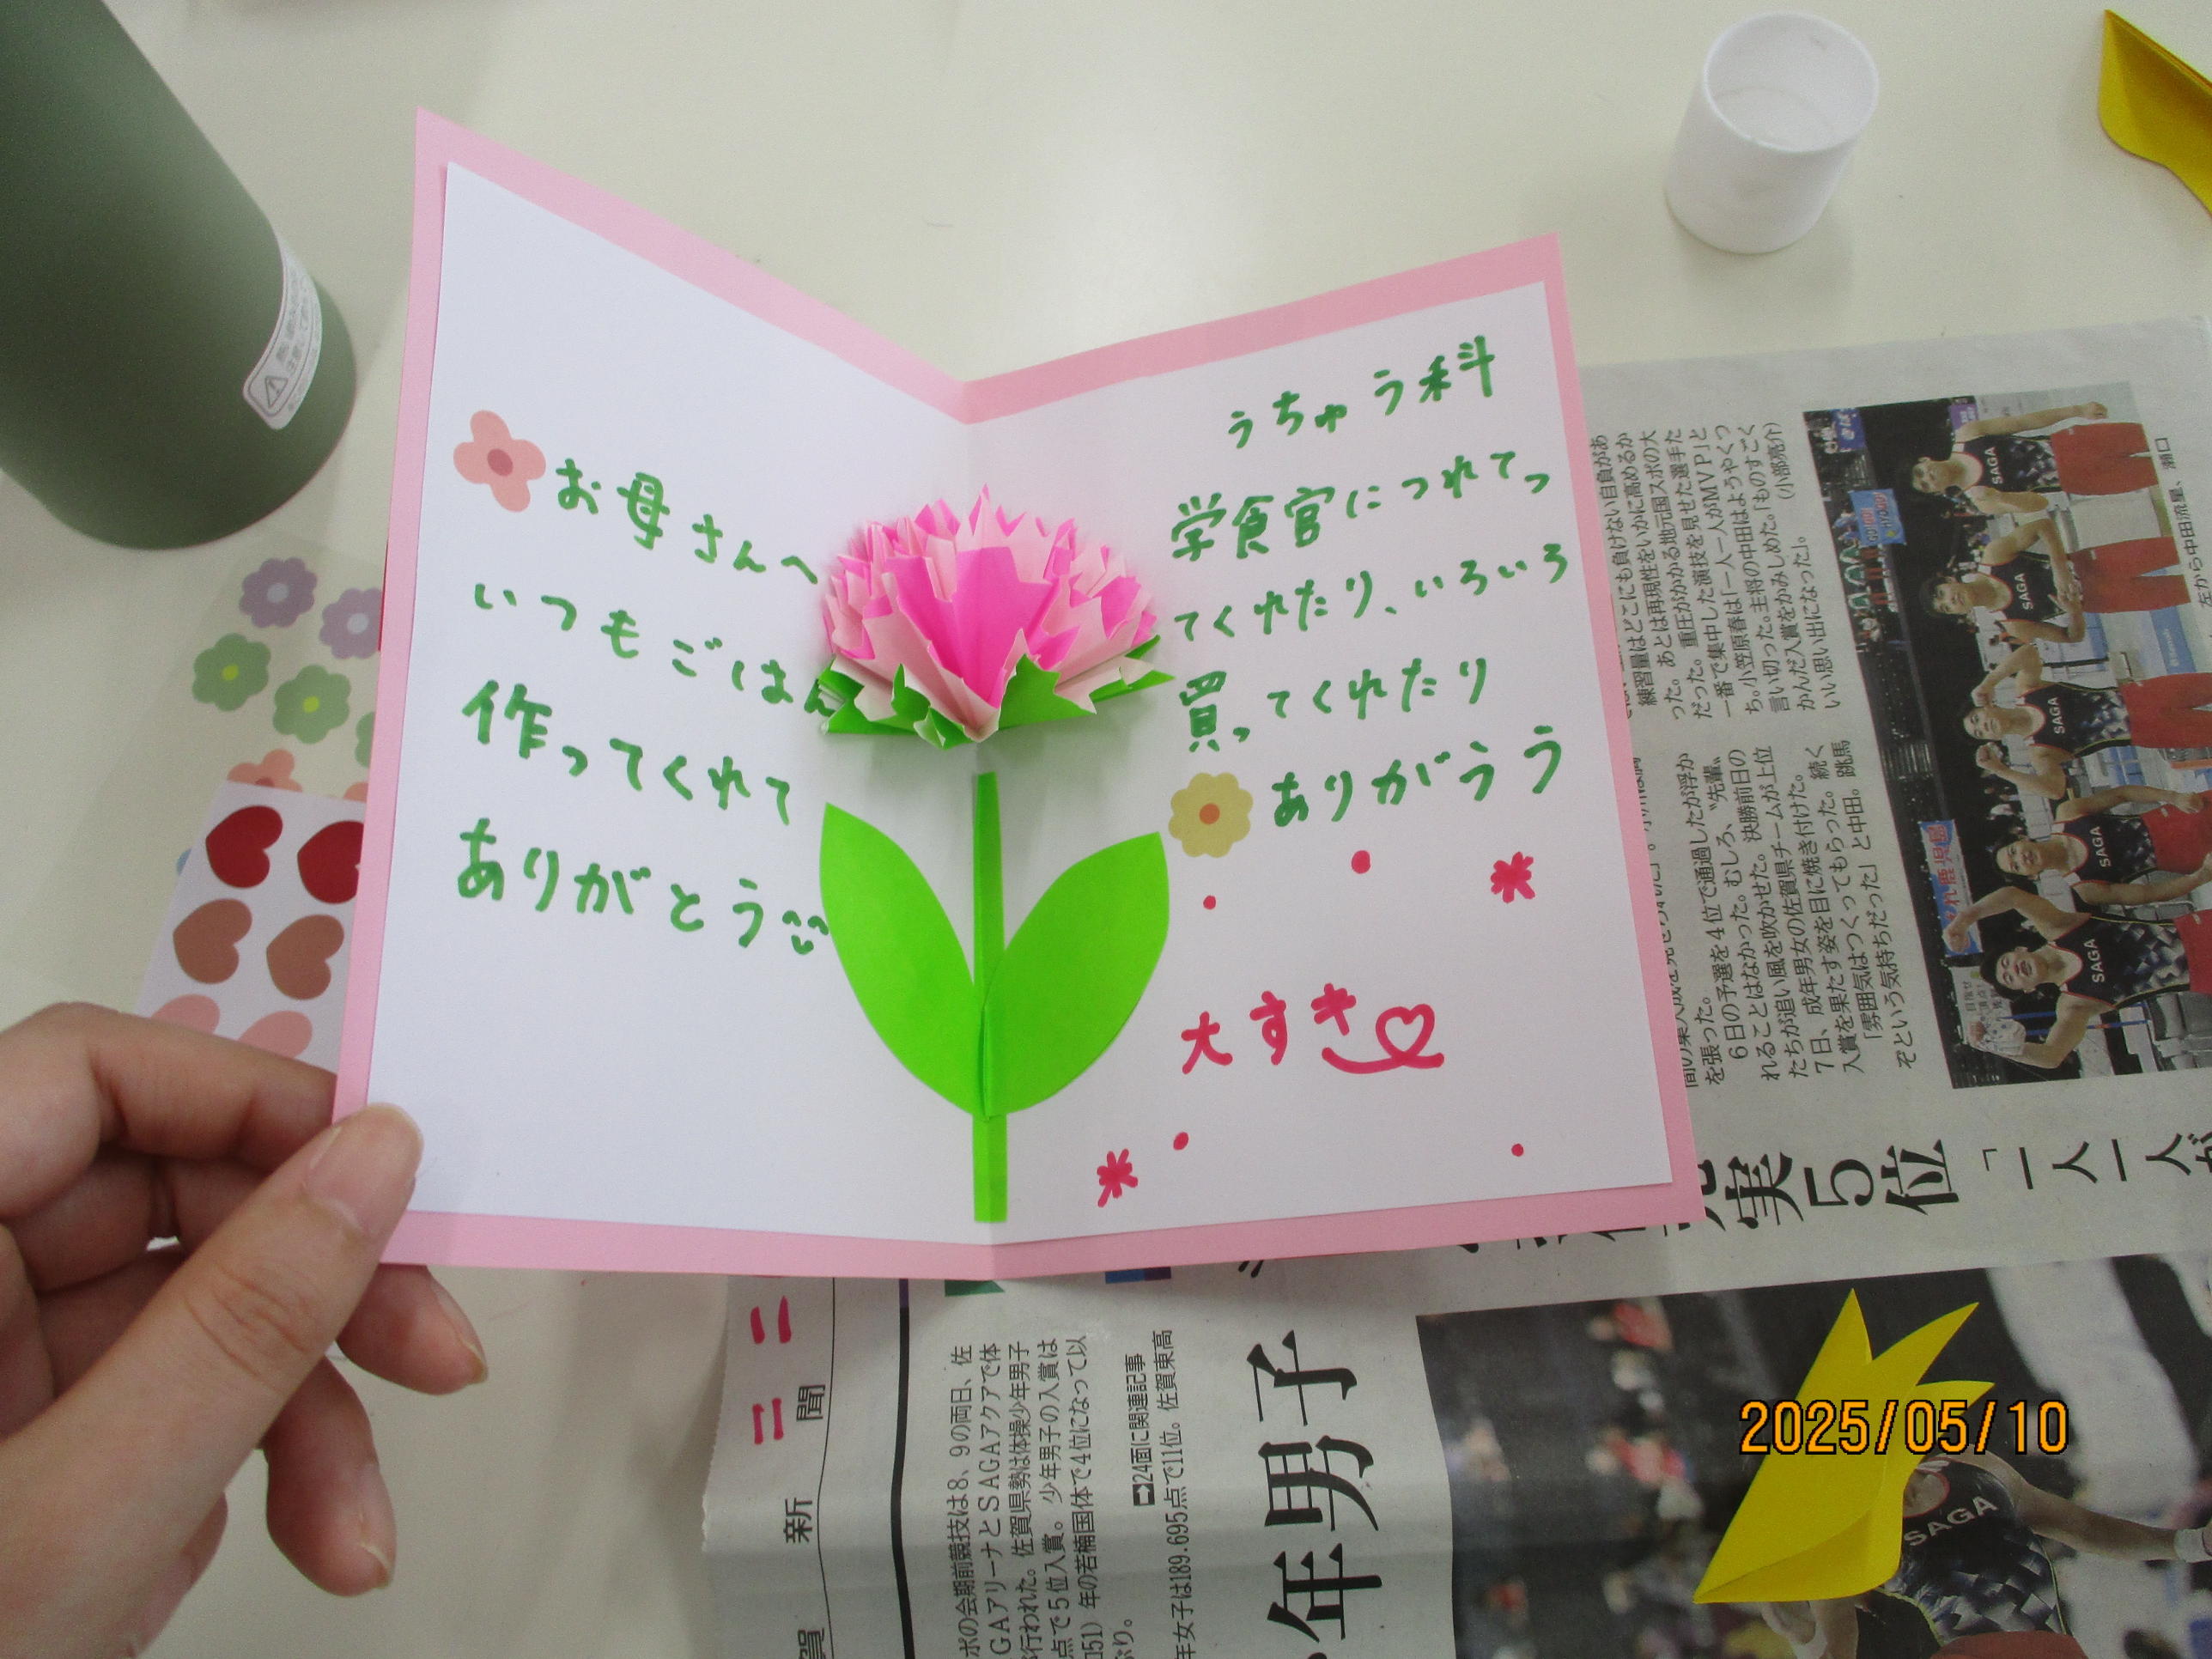 お母さんへ
いつもごはん
作ってくれて
ありがとう
うちゅう科
学食官につれてっ
てくれたり、いろいろ
買ってくれたり
ありがうう
大すき
練習量はどこにも負けない自負があ
った。あとは再現性をいかに高めるか
だった。重圧がかかる地元国スポの大
一番で集中した演技を見せた選手た
ち。小笠原春は「一人一人がMVP」と
言い切った。主将の中田はようやくつ
かんだ入賞をかみしめた。「ものすごく
いい思い出になった」。（小部亮介）
を張った。
6日の予選を4位で通過したが浮か
れることはなかった。むしろ、〝先輩〟
たちが追い風を吹かせた。決勝前日の
7日、成年男女の佐賀県チームが上位
入賞を果たす姿を目に焼き付けた。
「雰囲気はつくってもらった。続く
ぞという気持ちだった」と中田。跳馬
左から中田流星、瀬口
実5位
「一人一人が
SAGA
SAGA
SAGA
SAGA
SAGA
ポの会期前競技は8、9の両日、佐
GAアリーナとSAGAアクアで体
行われた。佐賀県勢は体操少年男子
点で5位入賞。少年男子の入賞は
051）年の若楠国体で4位になって以
ぶり。
➡24面に関連記事
年女子は189.695点で11位。佐賀東高
年男子
賀新聞
SAGA
2025/05/10